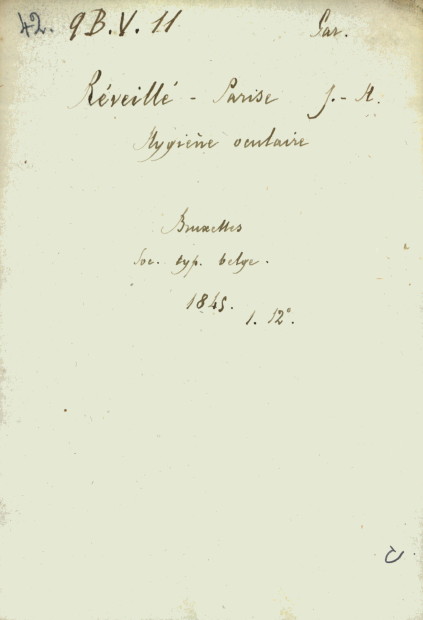 42. 9B.V.11 Par.
Réveillé - Parise J.-H.
Hygiène oculaire
Bruxelles
Soc. typ. belge.
1845.
1. 12°.